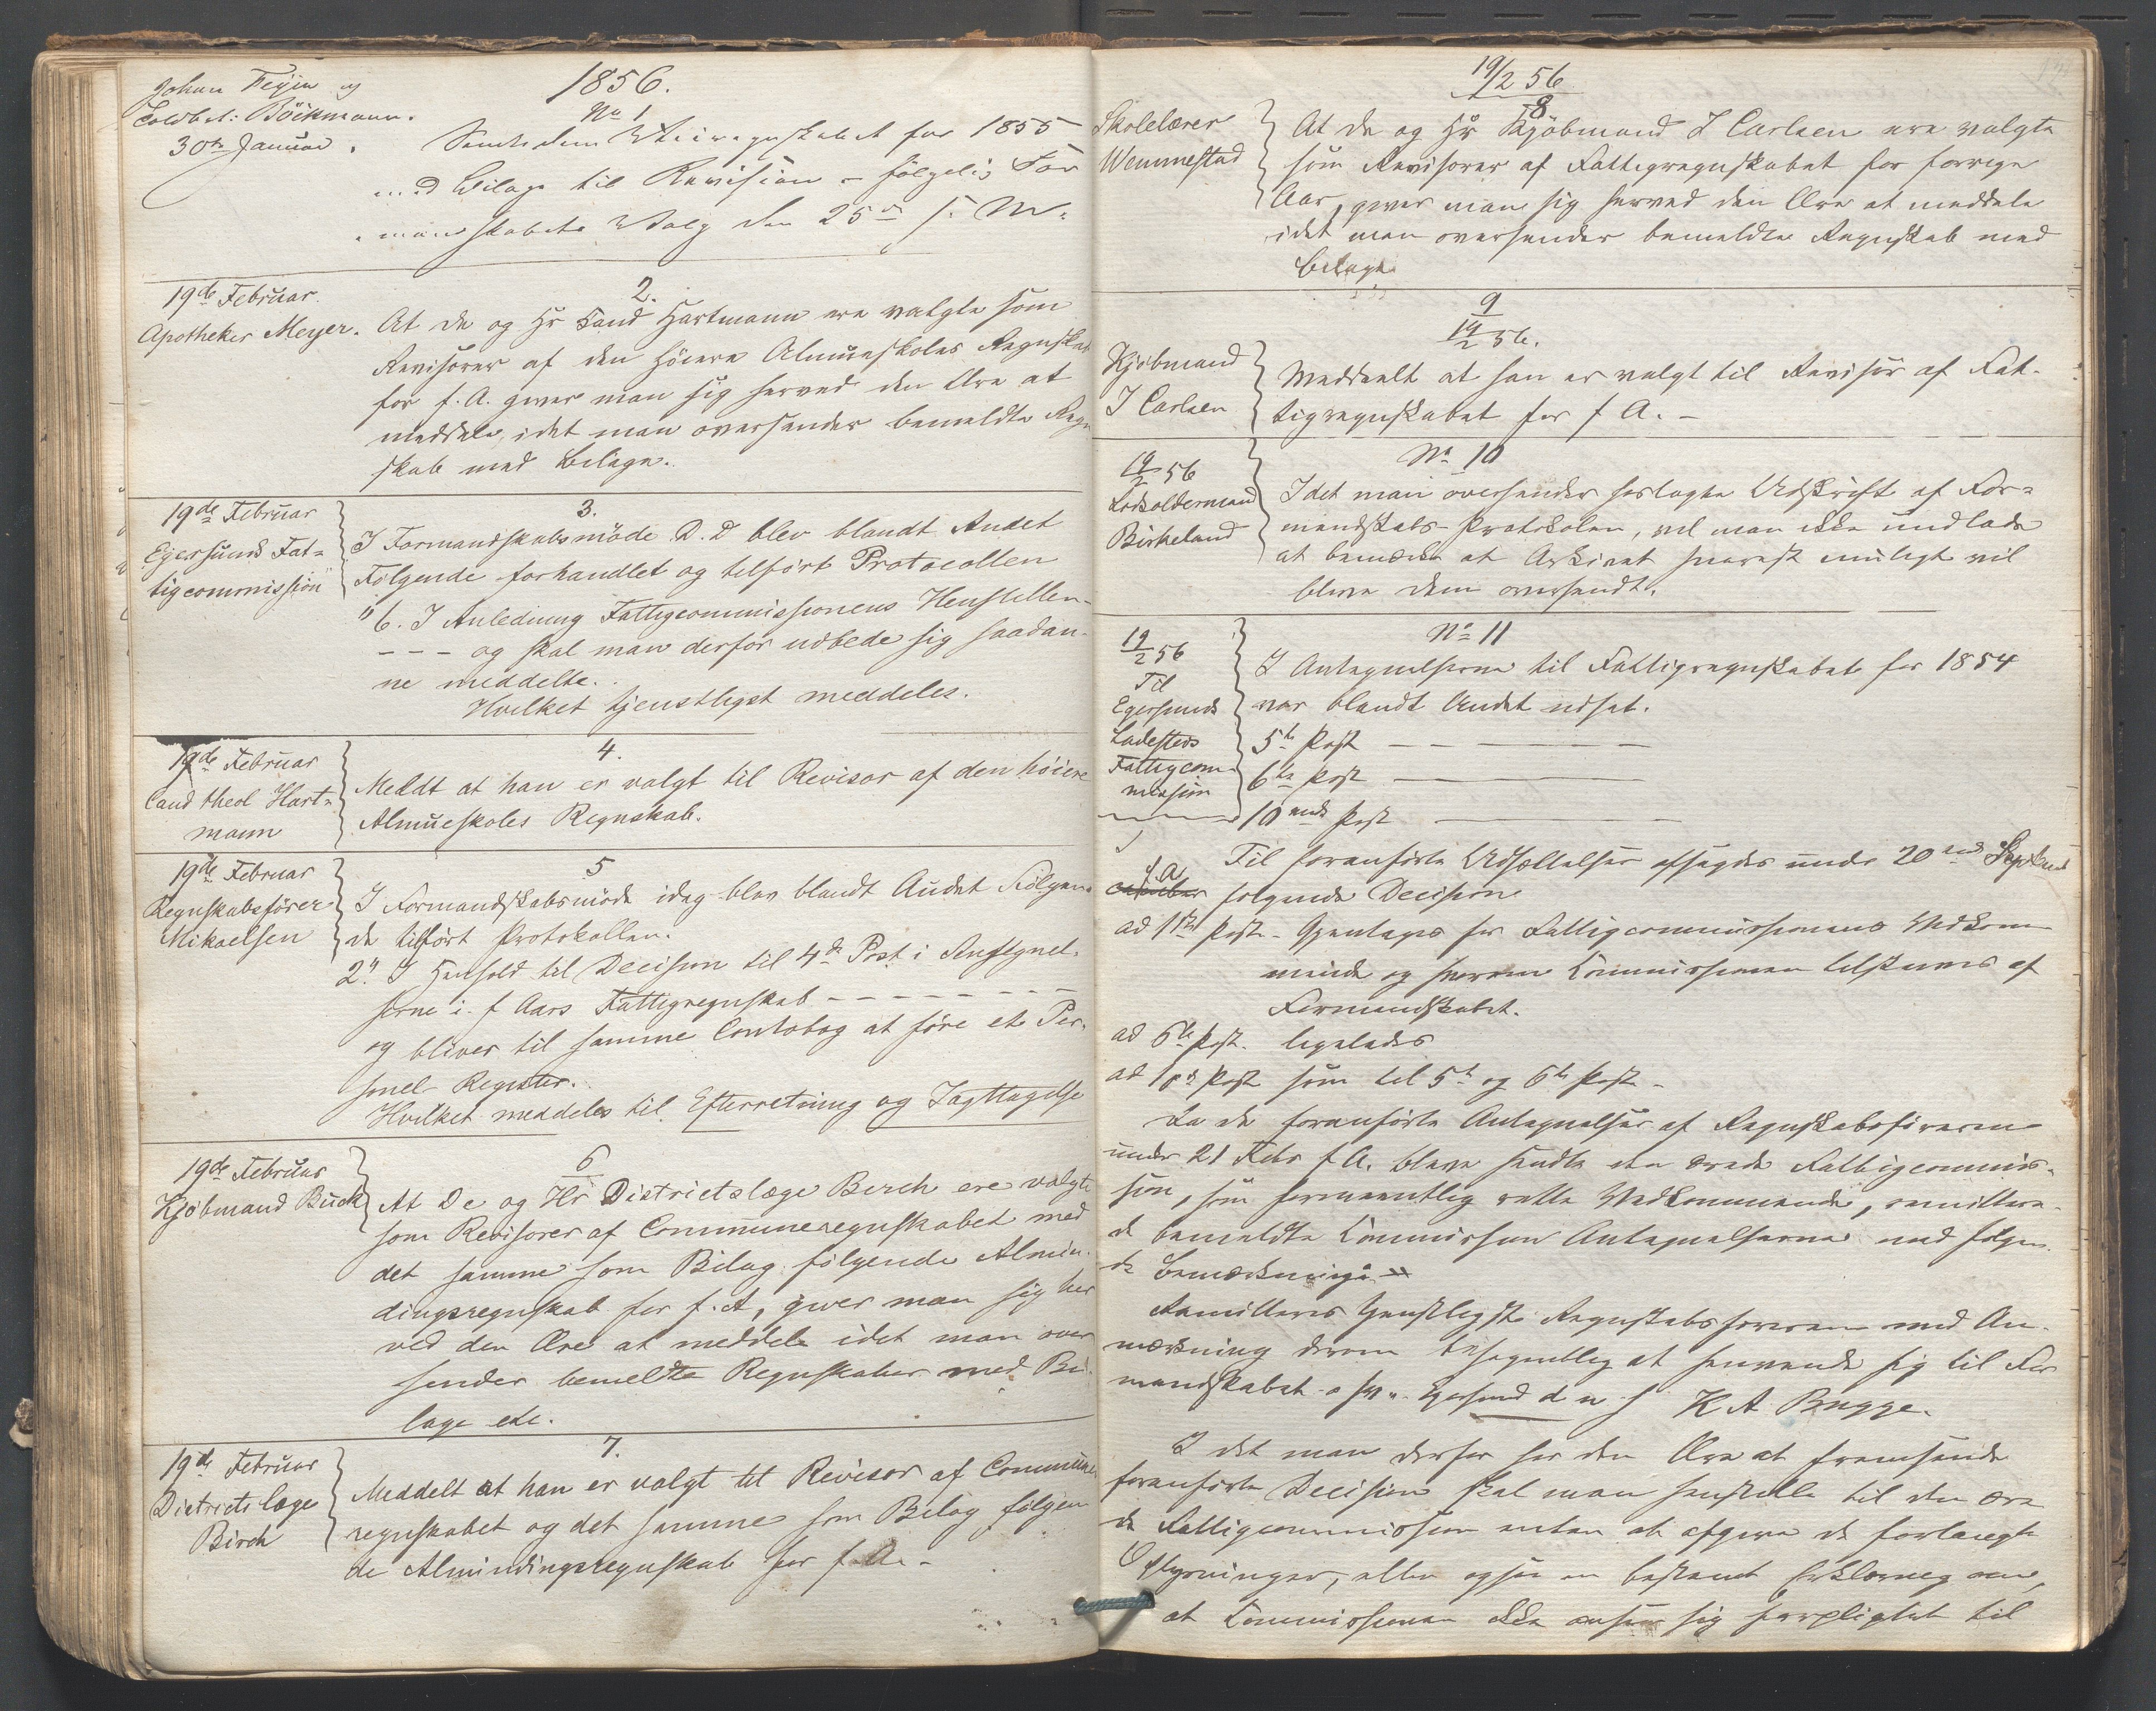 Johan Feyer og
Toldbet: Böckmann.
30te Januar.
1856.
No 1
Sendt dem regnskabet for 1855
med Bilage til Revision - følgelig For
mandskabets Valg den 25de f. M.
19de Februar.
Apotheker Meyer.
2.
At De og Hr Cand Hartmann ere valgte som
Revisorer af den höiere Almueskoles Regnskab
for f. A. giver man sig herved den Ære at
meddele, idet man oversender bemeldte Regn
skab med Bilage.
19de Februar
Egersunds Fat-
tigcommission
3.
I Formandskabsmöde D. D blev blandt Andet
Følgende forhandlet og tilført Protocollen
"6. I Anledning Fattigcommissionens Henstillen-
- - - og skal man derfor udbede sig saadan-
ne meddelte.
Hvilket tjenstligst meddeles.
19de Februar
Cand theol Hart-
mann
4.
Meldt at han er valgt til Revisor af den höiere
Almueskoles Regnskab.
19de Februar
Regnskabsfører
Mikaelsen
5
I Formandskabsmöde idag blev blandt Andet Følgen-
de tilført Protokollen.
2". I Henhold til Decision til 4de Post i Antegnel-
serne i f Aars Fattigregnskab - - - - - - - -
og bliver til samme Contobog at före et Per-
sonel Register.
Hvilket meddeles til Efterretning og Iagttagelse
19de Februar
Kjöbmand Buck
6
At De og Hr Districtslæge Birch ere valgte
som Revisorer af Communeregnskabet med
det samme som Bilag følgende Almin-
dingsregnskab for f. A, giver man sig her
ved den Ære at meddele idet man over
sender bemeldte Regnskaber med Bi-
lage etc.
19de Februar
Districtslæge
Birch
7.
Meddelt at han er valgt til Revisor af Commune
regnskabet og det samme som Bilag følgen
de Almindingsregnskab for f. A. -
19/2 56
8
Skolelærer
Wemmestad
At De og Hr Kjöbmand I Carlsen ere valgte
som Revisorer af Fattigregnskabet for forrige
Aar, giver man sig herved den Ære at meddele
idet man oversender bemeldte Regnskab med
Bilage.
9
19/2 56.
Kjöbmand
I Carlsen
Meddeelt at han er valgt til Revisor af Fat-
tigregnskabet for f A. -
19/2 56
Lodsoldermand
Birkeland
No 10
Idet man oversender forlangte Udskrift af For-
mandskabs-Protokolen, vil man ikke undlade
at bemærke at Arkivet snarest muligt vil
blive Dem oversendt.
19/2 56
Til
Egersunds
Ladesteds
Fattigcom-
mission
No 11
I Antegnelserne til Fattigregnskabet for 1854
var blandt Andet udsat.
5te Post - - - - - -
6te Post - - - -
10ende Post - - - -
Til foranførte Udsættelser afsagdes under 20ende September
f. A. følgende Decision
ad 1ste Post - Gjentages for Fattigcommissionens Vedkom-
mende og hvorom Commissionen tilskrives af
Formandskabet.
ad 6te Post. ligeledes
ad 10de Post som til 5te og 6te Post -
Da de foranførte Antegnelser af Regnskabsføreren
under 21 Febr f A. bleve sendte den ærede Fattigcommis-
sion, som formeentlig rette Vedkommende, remittere-
de bemeldte Commission Antegnelserne med følgen-
de Bemærkning
Remitteres tjenstligst Regnskabsføreren med An-
mærkning derom at henvende sig til For
mandskabet Egersund d u s K A Bugge.
I det man derfor har den Ære at fremsende
foranførte Decision skal man henstille til den ære
de Fattigcommission enten at afgive de forlangte
Oplysninger, eller ogsaa en bestemt Erklæring om,
at Commissionen ikke anseer sig forpligtet til